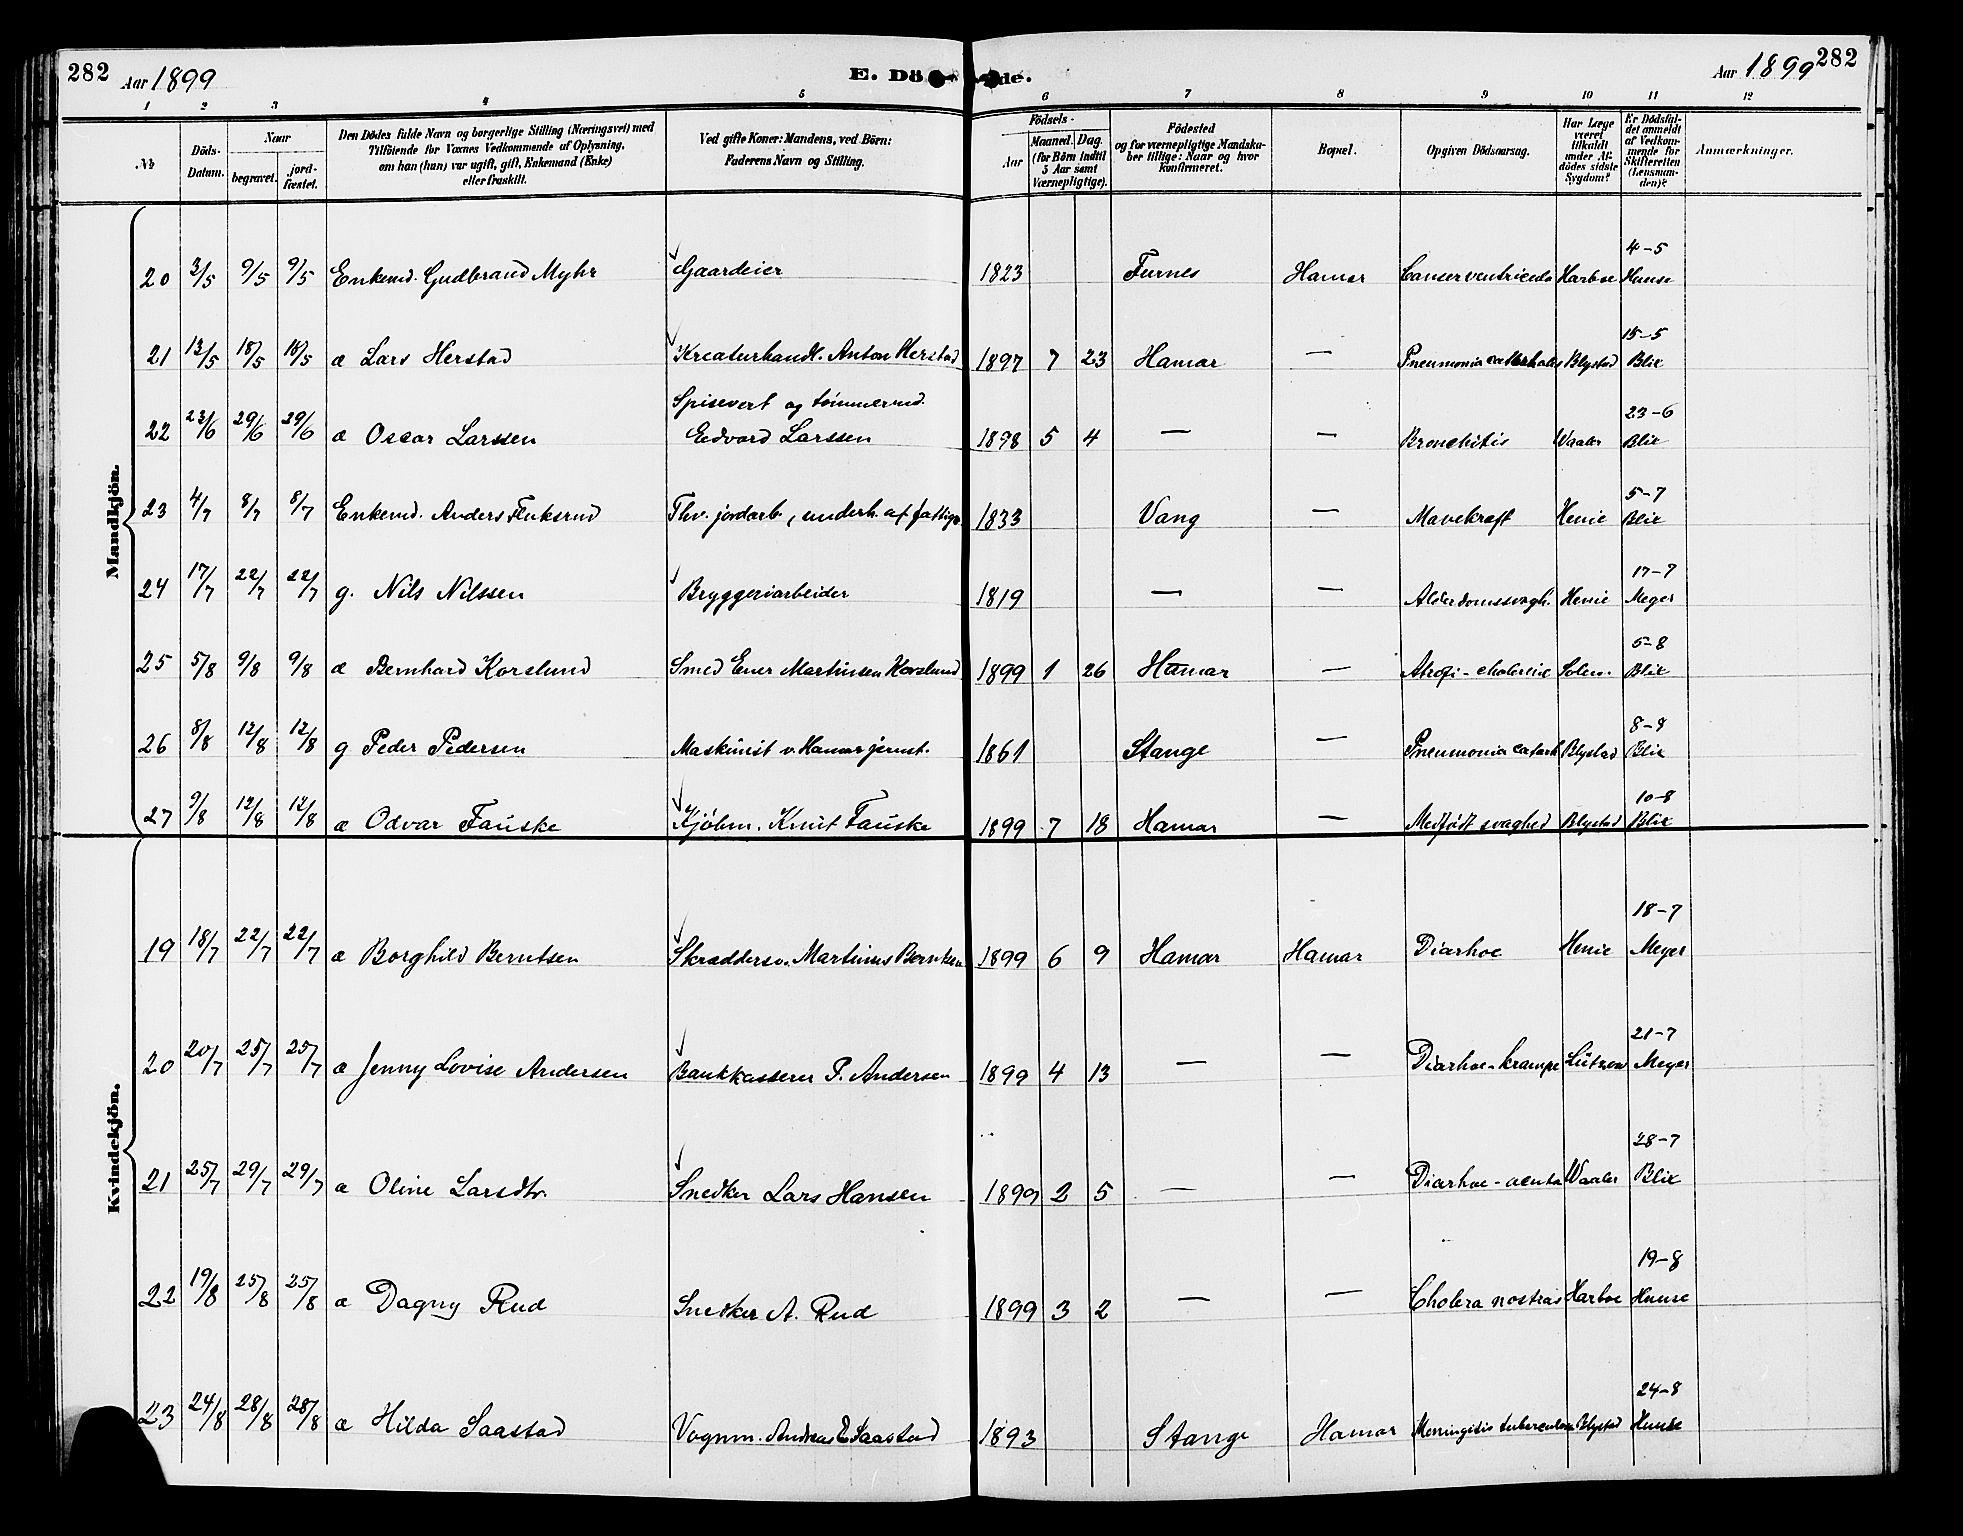 282 Aar 1899 E. Dö de. Aar 1899 282
1 2 3 4 5 6 7 8 9 10 11 12
№ Döds-Datum. Naar begravet. jord-fæstet. Den Dödes fulde Navn og borgerlige Stilling (Næringsvei) med Tilföiende for Voxnes Vedkommende af Oplysning, om han (hun) var ugift, gift, Enkemand (Enke) eller fraskilt. Ved gifte Koner: Mandens, ved Börn: Faderens Navn og Stilling. Födsels- Aar Maaned. Dag. (for Börn indtil 5 Aar samt Værnepligtige). Födested og for værnepligtige Mandskaber tillige: Naar og hvor konfirmeret. Bopæl. Opgiven Dödsaarsag. Har Læge været tilkaldt under Afdödes sidste Sygdom? Er Dödsfaldet anmeldt af Vedkommende for Skifteretten (Lensmanden)? Anmærkninger.
Mandkjön.
20 3/5 9/5 9/5 Enkemd. Gudbrand Myhr Gaardeier 1823 Furnes Hamar Cancer ventriculi Harboe 4-5 Huuse
21 13/5 18/5 18/5 a Lars Herstad Kreaturhandl. Anton Herstad 1897 7 23 Hamar — Pneumonia catterhalis Blystad 15-5 Blix
22 23/6 29/6 29/6 a Oscar Larssen Spisevert og tömmermd. Edvard Larssen 1898 5 4 — — Bronchitis Waaler 23-6 Blix
23 4/7 8/7 8/7 Enkemd. Anders Fluksrud Fhv. jordarb, underh. af fattigv. 1833 Vang — Mavekræft Henie 5-7 Blix
24 17/7 22/7 22/7 g. Nils Nilssen Bryggeriarbeider 1819 — — Alderdomssvagh. Henie 17-7 Meyer
25 5/8 9/8 9/8 a Bernhard Korslund Smed Ener Martinsen Korslund 1899 1 26 Hamar — Atrofi - cholerine Solem. 5-8 Blix
26 8/8 12/8 12/8 g Peder Pedersen Maskinist v. Hamar jernst. 1861 Stange — Pneumonia catarh Blystad 8-8 Blix
27 9/8 12/8 12/8 a Odvar Fauske Kjöbm. Knut Fauske 1899 7 18 Hamar — Medfödt svaghed Blystad 10-8 Blix
Kvindekjön.
19 18/7 22/7 22/7 a Borghild Berntsen Skræddersv. Martinus Berntsen 1899 6 9 Hamar Hamar Diarhoe Henie 18-7 Meyer
20 20/7 25/7 25/7 a Jenny Lovise Andersen Bankkasserer P. Andersen 1899 4 13 — — Diarhoe-krampe Lützow 21-7 Meyer
21 25/7 29/7 29/7 a Oline Larsdtr. Snedker Lars Hansen 1899 2 5 — — Diarhoe - acuta Waaler 28-7 Blix
22 19/8 25/8 25/8 a Dagny Rud Snedker A. Rud 1899 3 2 — — Cholera nostras Harboe 19-8 Huuse
23 24/8 28/8 28/8 a Hilda Saastad Vognm. Andreas E Saastad 1893 Stange Hamar Meningitis tuberculosa Blystad 24-8 Huuse